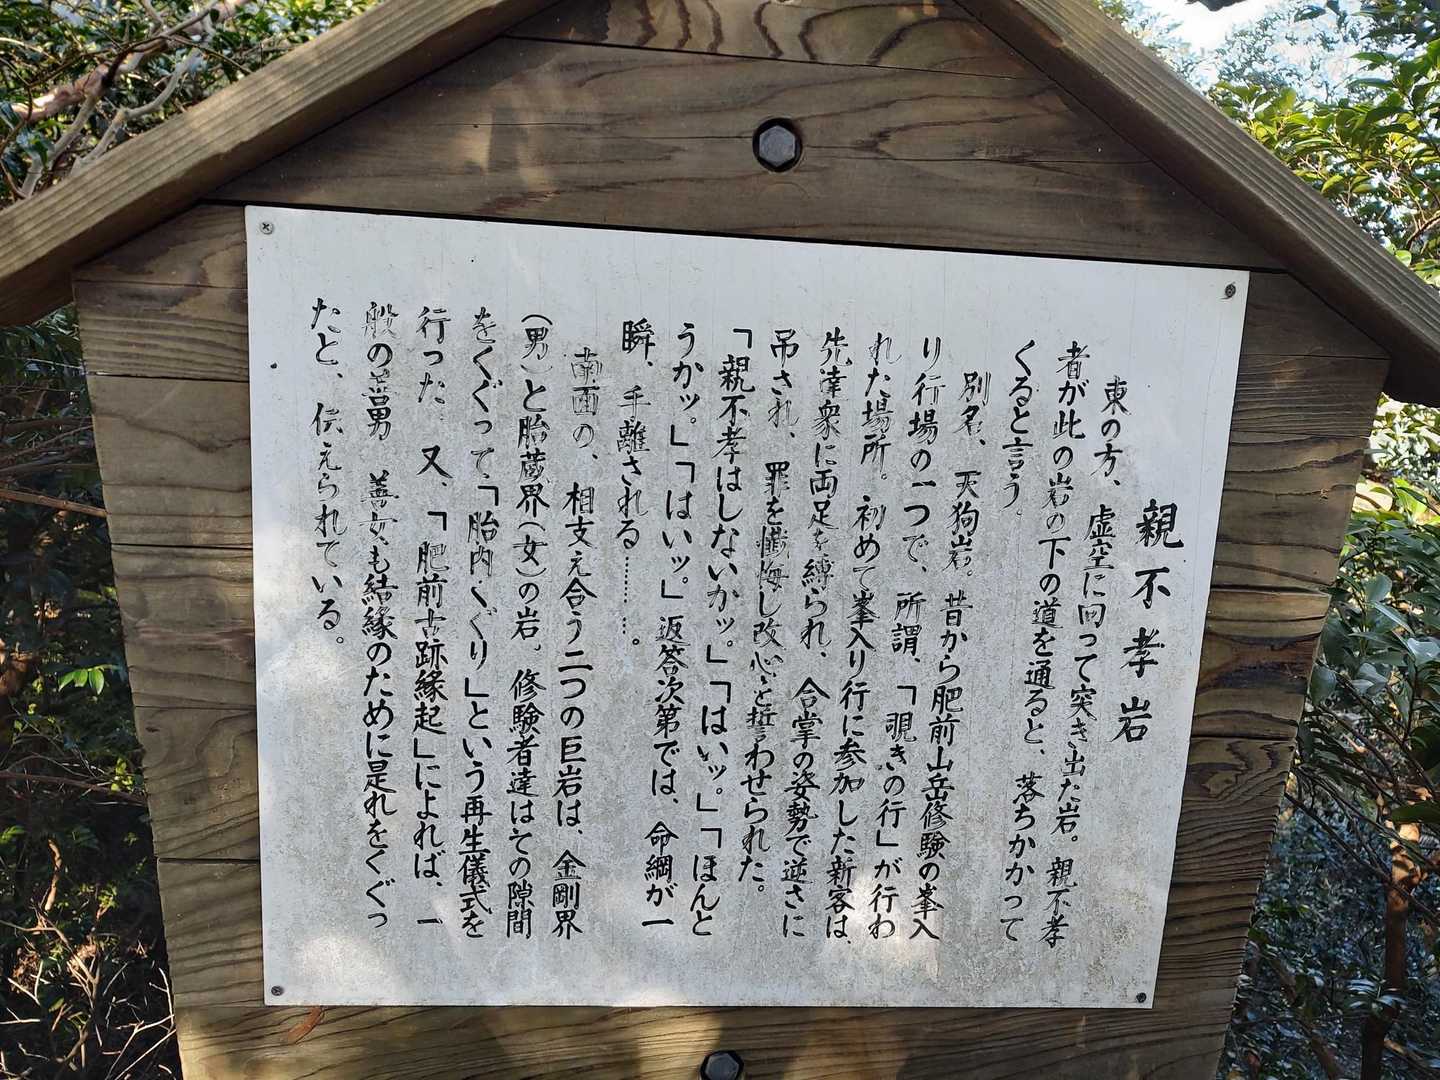 親不孝岩
東の方、虚空に向って突き出た岩。親不孝
者が此の岩の下の道を通ると、落ちかかって
くると言う。
別名、天狗岩。昔から肥前山岳修験の峯入
り行場の一つで、所謂、「覗きの行」が行わ
れた場所。初めて峯入り行に参加した新客は、
先達衆に両足を縛られ、合掌の姿勢で逆さに
吊され、罪を懺悔し改心を誓わせられた。
「親不孝はしないかッ。」「はいッ。」「ほんと
うかッ。」「はいッ。」返答次第では、命綱が一
瞬、手離される………。
南面の、相支え合う二つの巨岩は、金剛界
(男)と胎蔵界(女)の岩。修験者達はその隙間
をくぐって、「胎内くぐり」という再生儀式を
行った。又、「肥前古跡縁起」によれば、一
般の善男善女も結縁のために是れをくぐっ
たと、伝えられている。